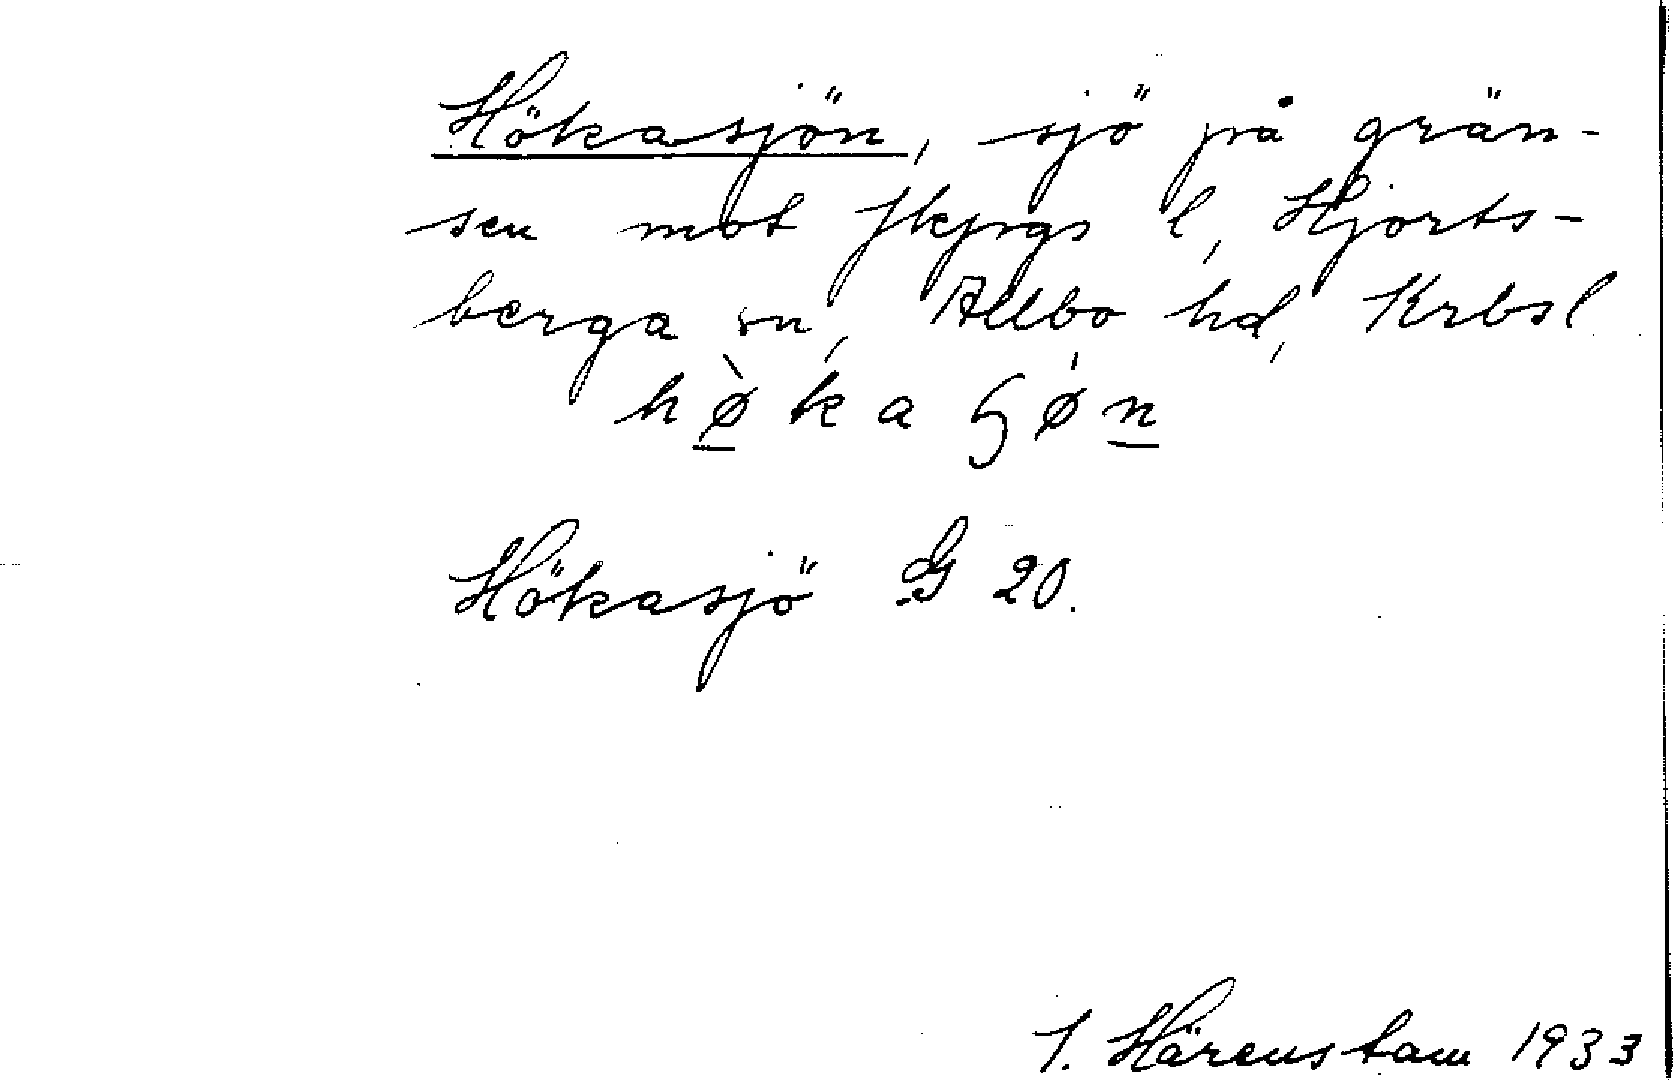 Hökasjön, sjö på grän-
sen mot Jkpgs l, Hjorts-
berga sn, Allbo hd, Krbsl
hø̀kaɧøń
Hökasjö G 20.
J. Härenstam 1933